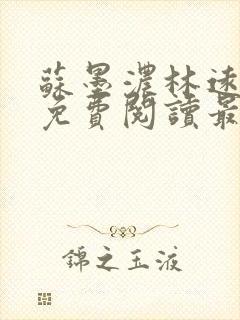 蘇墨濃林遠
免費閱讀最
錦之玉液